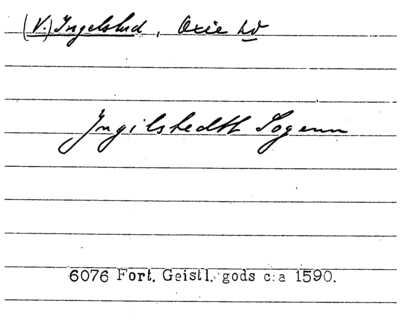 (V.) Ingelstad, Oxie hd
Ingilstedtt Sogenn
6076 Fort. Geistl. gods c:a 1590.